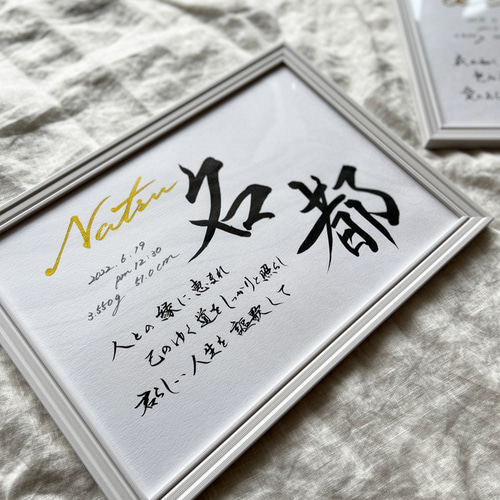 Natsu
名都
2022.6.19
pm 12:30
3.550g 51.0cm
人との縁に恵まれ
己のゆく道をしっかりと照らし
君らしい人生を謳歌して